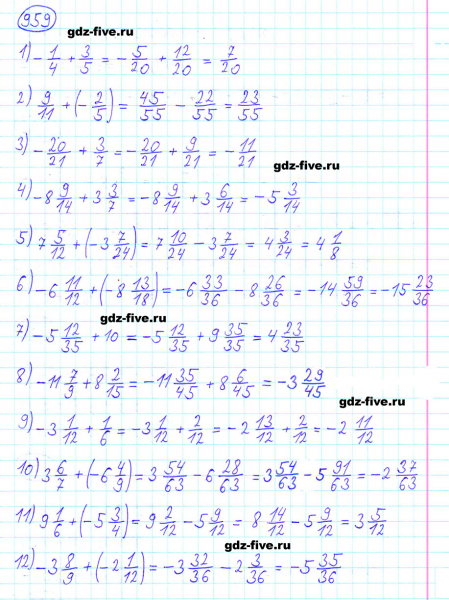 959
gdz-five.ru
1) -1/4 + 3/5 = -5/20 + 12/20 = 7/20
2) 9/11 + (-2/5) = 45/55 - 22/55 = 23/55
3) -20/21 + 3/7 = -20/21 + 9/21 = -11/21
gdz-five.ru
4) -8 9/14 + 3 3/7 = -8 9/14 + 3 6/14 = -5 3/14
5) 7 5/12 + (-3 7/24) = 7 10/24 - 3 7/24 = 4 3/24 = 4 1/8
6) -6 11/12 + (-8 13/18) = -6 33/36 - 8 26/36 = -14 59/36 = -15 23/36
gdz-five.ru
7) -5 12/35 + 10 = -5 12/35 + 9 35/35 = 4 23/35
8) -11 7/9 + 8 2/15 = -11 35/45 + 8 6/45 = -3 29/45
gdz-five.ru
9) -3 1/12 + 1/6 = -3 1/12 + 2/12 = -2 13/12 + 2/12 = -2 11/12
10) 3 6/7 + (-6 4/9) = 3 54/63 - 6 28/63 = 3 54/63 - 5 91/63 = -2 37/63
11) 9 1/6 + (-5 3/4) = 9 2/12 - 5 9/12 = 8 14/12 - 5 9/12 = 3 5/12
gdz-five.ru
12) -3 8/9 + (-2 1/12) = -3 32/36 - 2 3/36 = -5 35/36